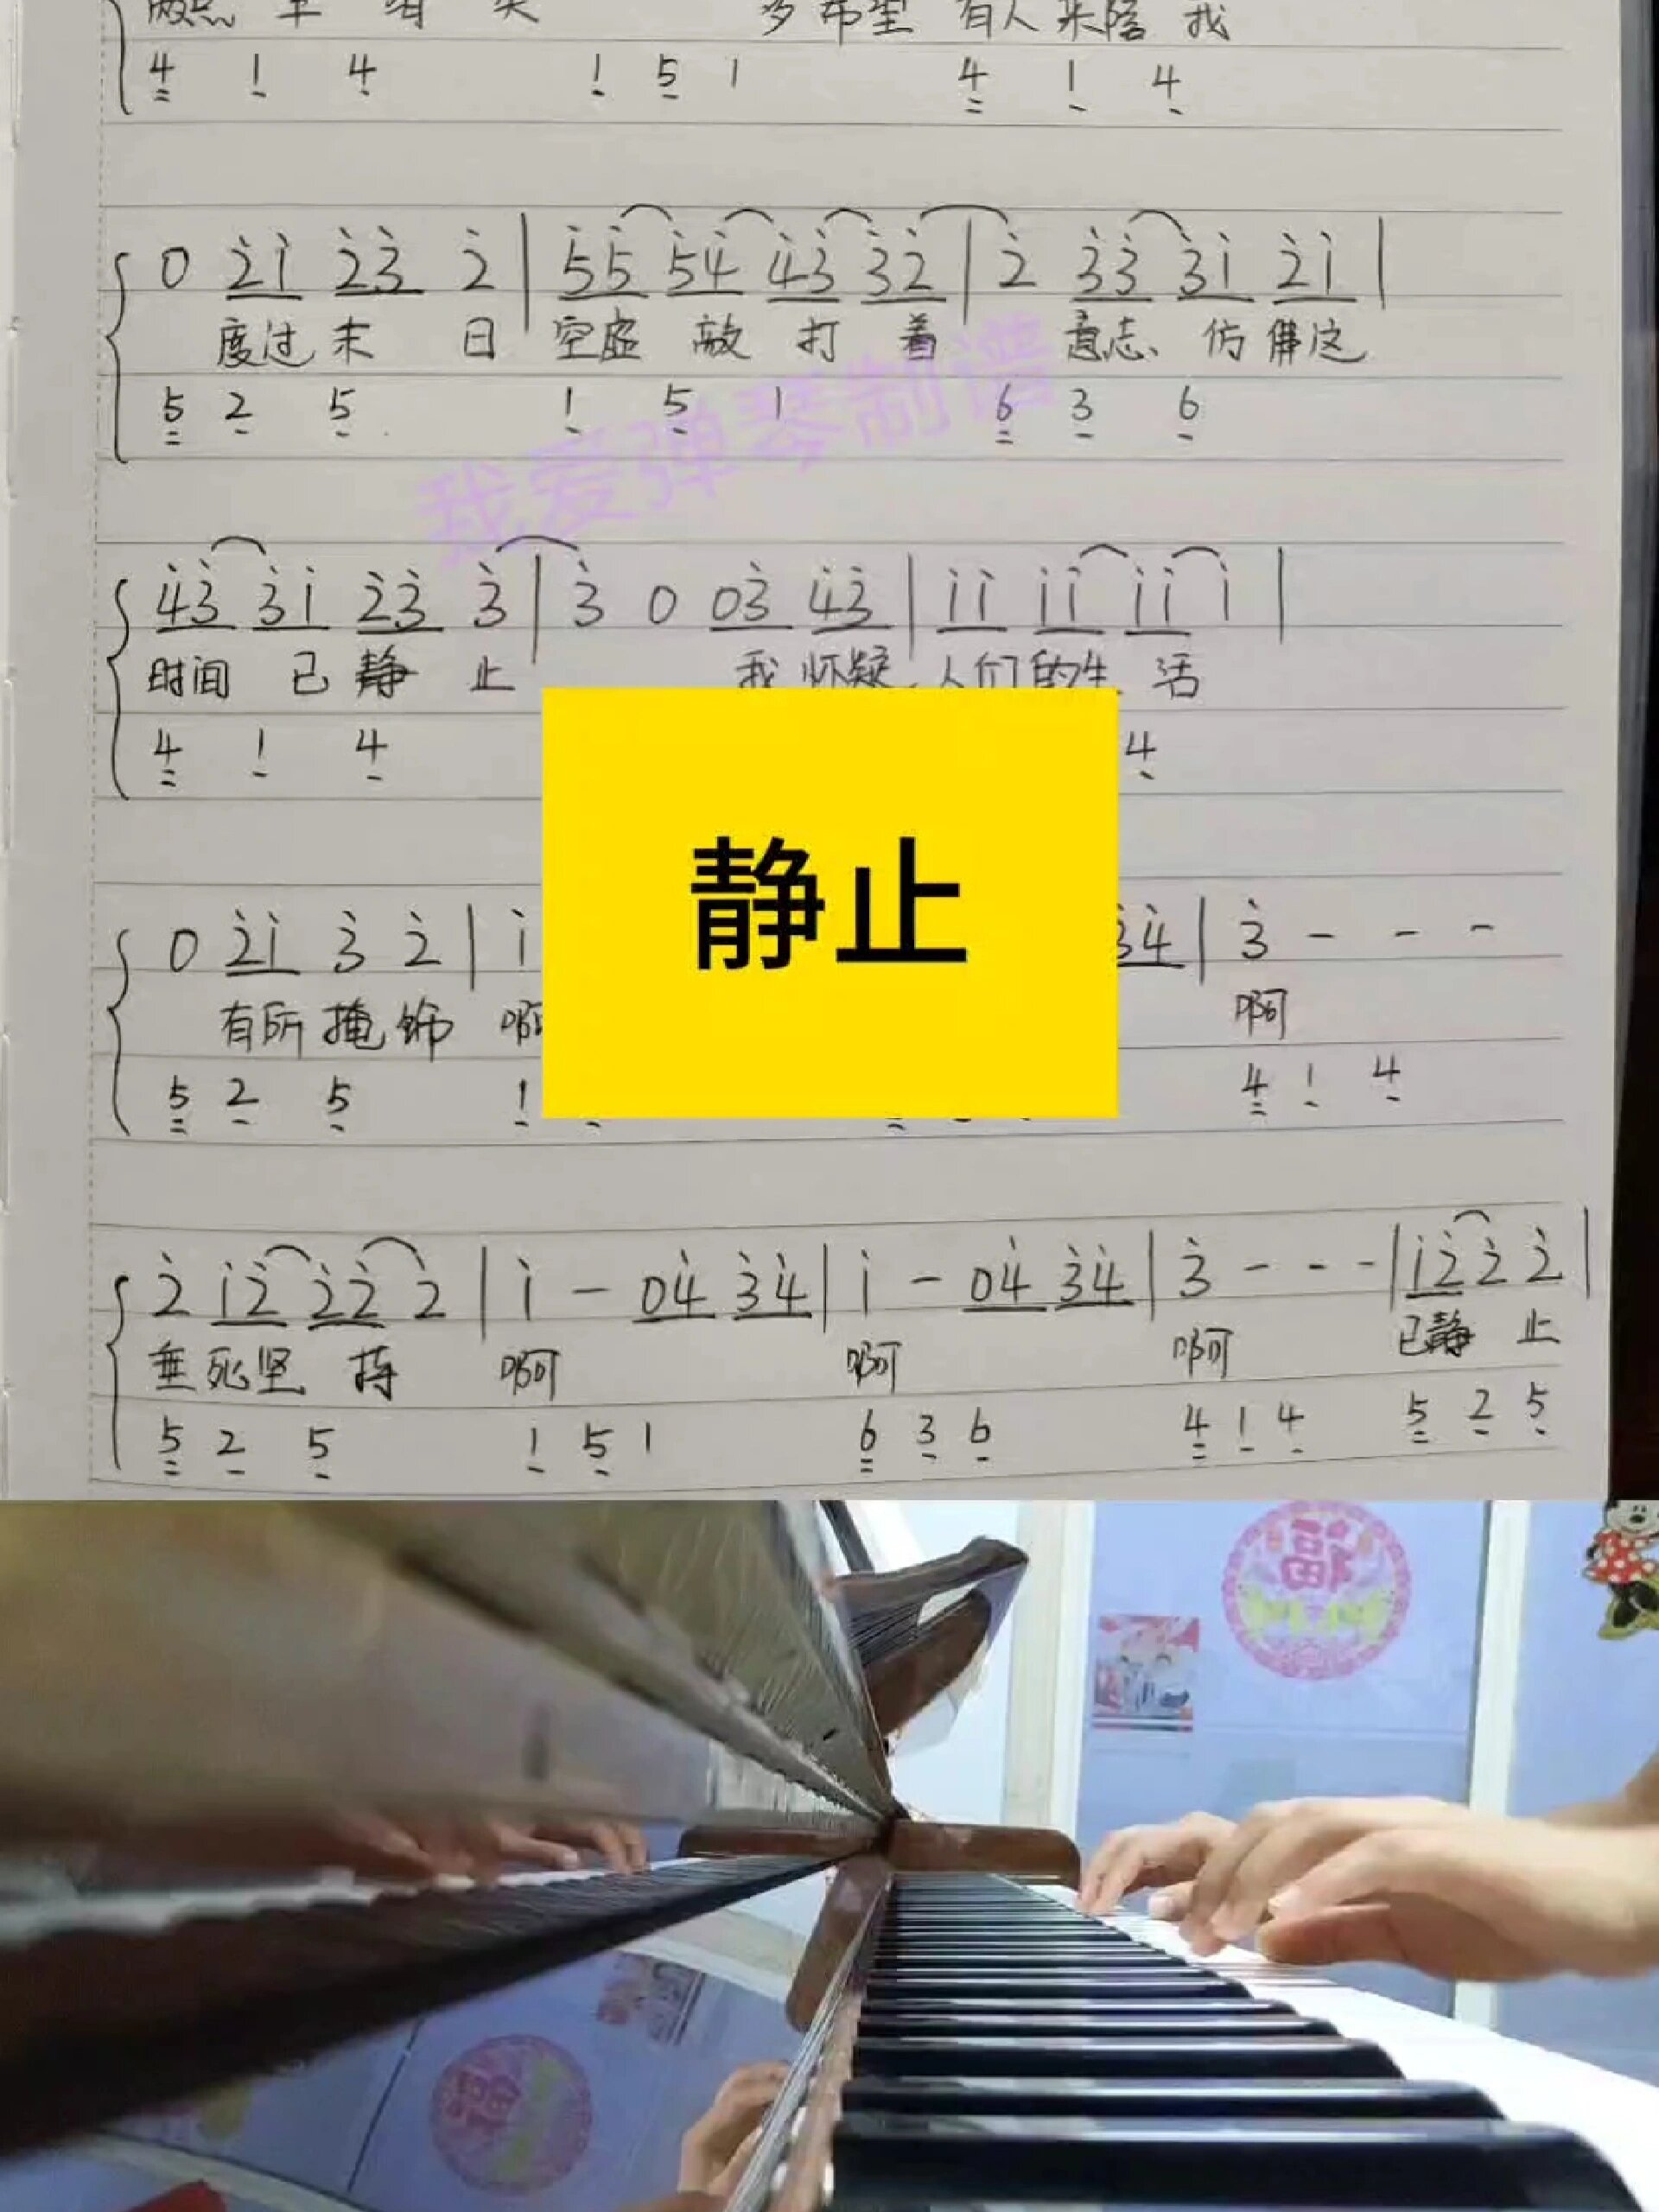 多希望 有人来陪 我
4 1 4 1 5 1 4 1 4
0 2i 23 2 | 55 54 43 32 | 2 33 31 2i |
度过末 日 空虚 敲 打 着 意志 仿佛这
5 2 5 1 5 1 6 3 6
我爱弹琴制谱
43 3i 23 3 | 3 0 03 43 | ii ii ii i |
时间 已 静 止 我 怀疑 人们的生 活
4 1 4 4
静止
0 2i 3 2 | i 34 | 3 - - -
有所 掩饰 啊 啊
5 2 5 1 4 1 4
2 i2 22 2 | i - 04 34 | i - 04 34 | 3 - - - | i2 2 2 |
垂死坚 持 啊 啊 啊 已静 止
5 2 5 1 5 1 6 3 6 4 1 4 5 2 5
福